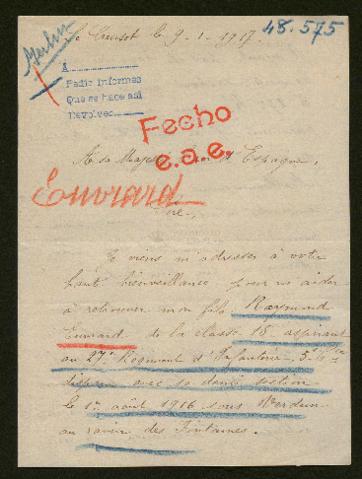 Le Creusot le 9-1-1917.
48.575
Berlin
A
Pedir informes
Que se hace asi
Devolver
Fecho
e.a.e.
A Sa Majesté Espagne,
Euvrard
Sire,
Je viens m'adresser à votre
haute bienveillance pour m'aider
à retrouver mon fils Raymond
Euvrard de la classe 16 aspirant
au 27e Régiment d'Infanterie. 5e Cie
disparu avec sa demi section
le 1er août 1916 sous Verdun
au ravin des Fontaines.